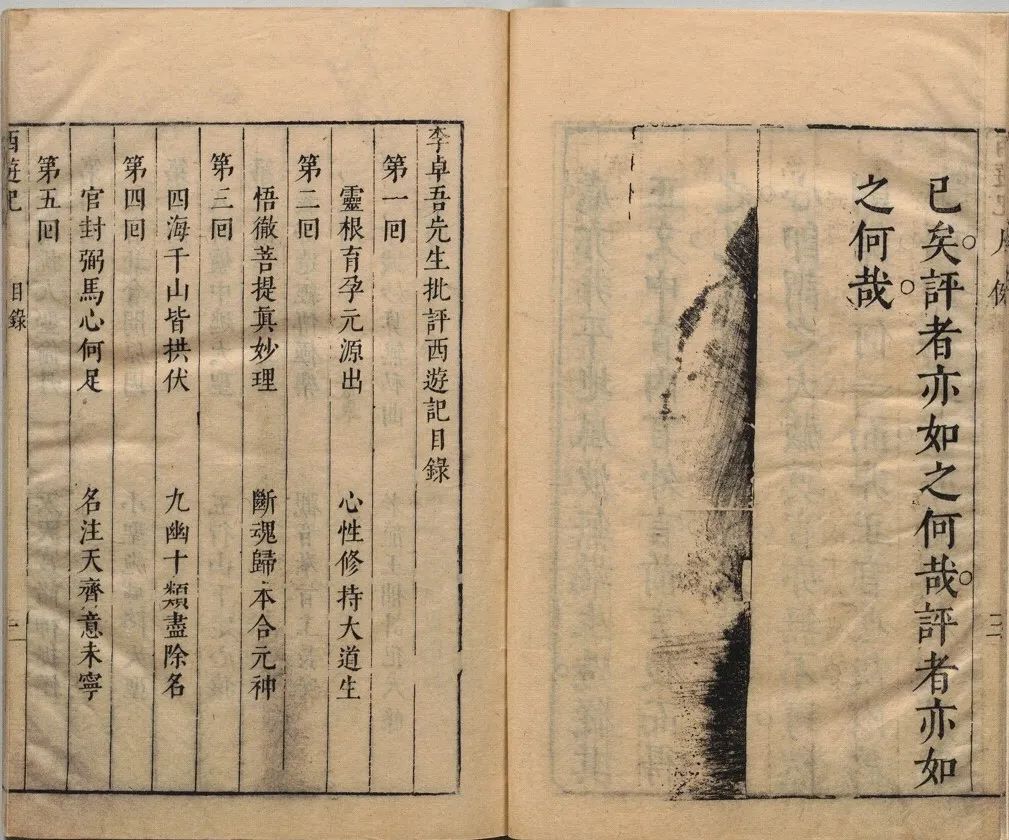 已矣評者亦如之何哉評者亦如
之何哉
李卓吾先生批評西遊記目錄
第一囘
靈根育孕元源出 心性修持大道生
第二囘
悟徹菩提眞妙理 斷魂歸本合元神
第三囘
四海千山皆拱伏 九幽十類盡除名
第四囘
官封弼馬心何足 名注天齊意未寧
第五囘
西遊記 目錄 一